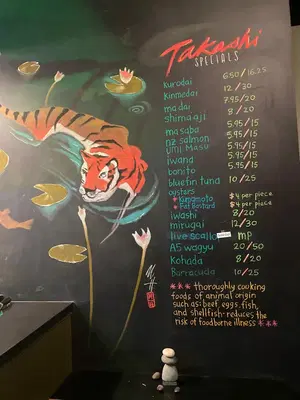 Takashi
SPECIALS
Kurodai 6.50/16.25
Kinmedai 12/30
madai 7.95/20
shimaaji 8/20
masaba 5.95/15
nz salmon 5.95/15
umi masu 5.95/15
iwana 5.95/15
bonito 5.95/15
bluefin tuna 10/25
oystars
* Kumamoto $4 per piece
* Fat Bastard $4 per piece
iwashi 8/20
mirugai 12/30
live scallop MP
A5 wagyu 20/50
Kohada 8/20
Barracuda 10/25
*** thoroughly cooking
foods of animal origin
such as: beef, eggs, fish,
and shellfish-reduces the
risk of foodborne illness ***